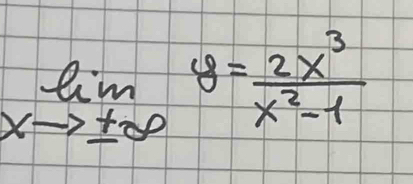 lim y = 2x³ / x² - 1
x → ±∞